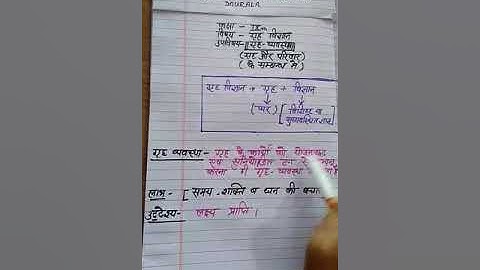 DAURALA
कक्षा - IX
विषय - गृह विज्ञान
उपविषय - गृह-व्यवस्था
(गृह और परिवार
के सम्बन्ध में)
गृह विज्ञान = गृह + विज्ञान
(घर) [विशिष्ट व
सुव्यवस्थित ज्ञान
गृह व्यवस्था - गृह के कार्यों को योजनाबद्ध
एवं
करना ही गृह-व्यवस्था
लाभ - [समय, शक्ति व धन की बचत
उद्देश्य - लक्ष्य प्राप्ति ।